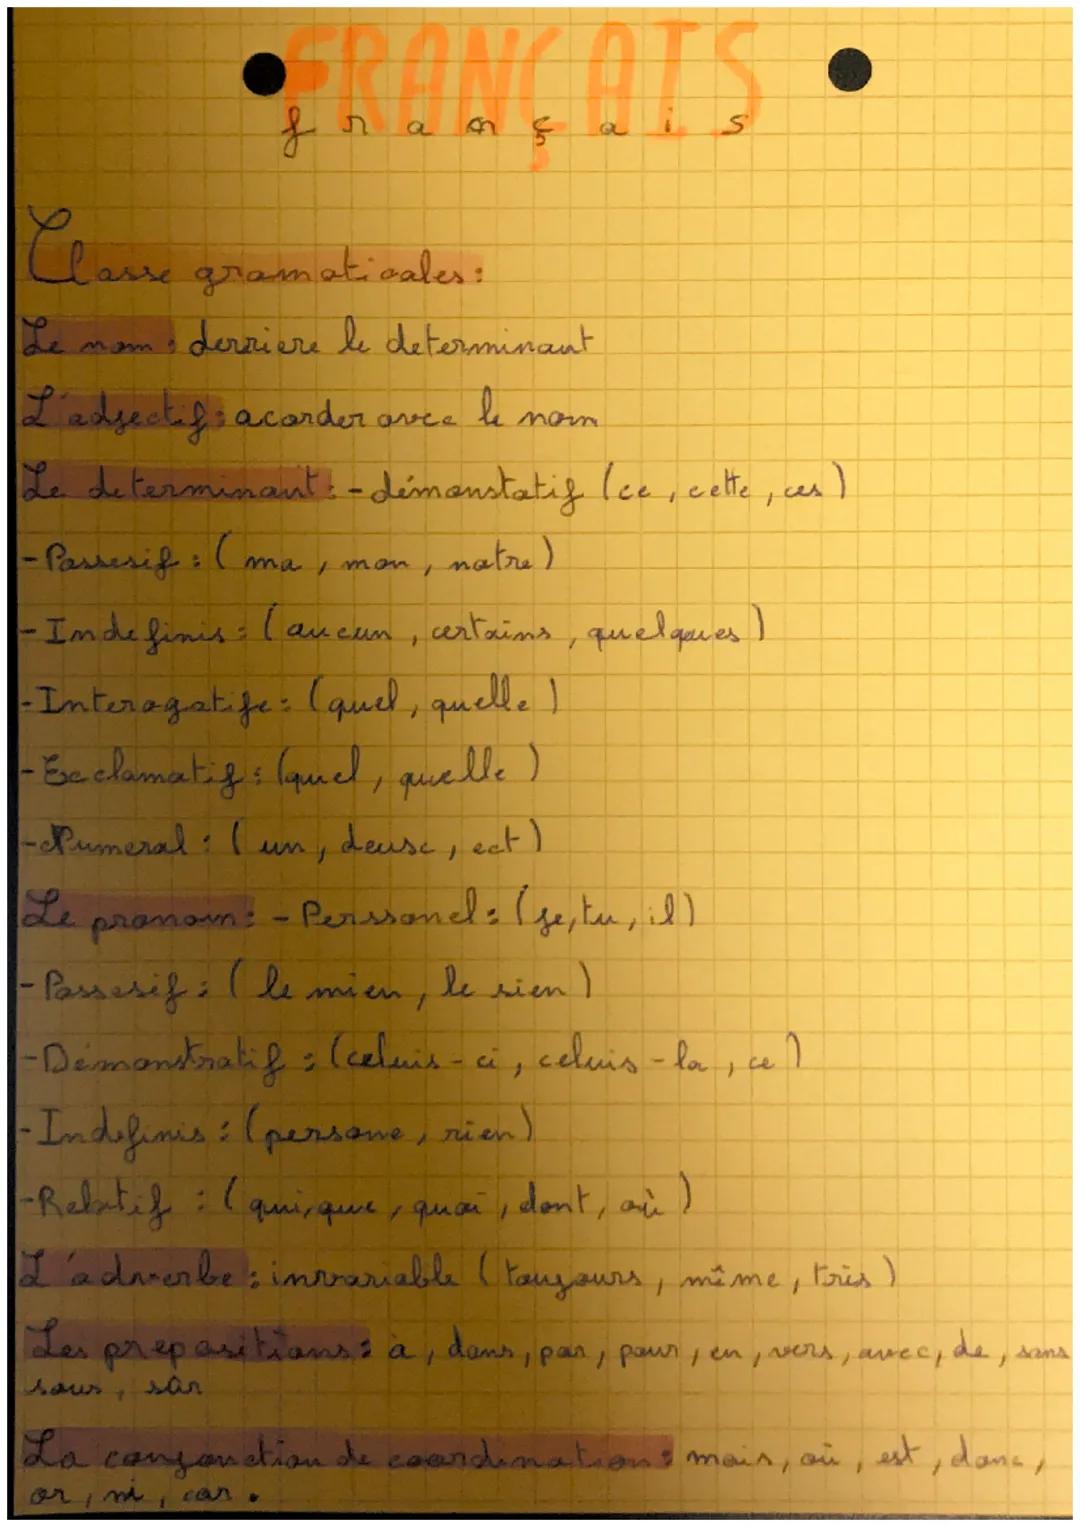 FRANÇAIS
français
Classe gramaticales:
Le nom: derriere le determinant
L'adjectif: acorder avec le nom
Le determinant: - démonstatif (ce, cette, ces)
- Possesif: (ma, mon, notre)
- Indefinis: (aucun, certains, quelques)
- Interogatife: (quel, quelle)
- Exclamatif: (quel, quelle)
- Numeral: (un, deux, ect)
Le pronom: - Perssonel: (je, tu, il)
- Possesif: (le mien, le sien)
- Démonstratif: (celuis-ci, celuis-la, ce)
- Indefinis: (persone, rien)
- Relatif: (qui, que, quoi, dont, où)
L'adverbe: invariable (toujours, même, très)
Les prepositions: à, dans, par, pour, en, vers, avec, de, sans
sous, sûr
La conjonction de coordination: mais, où, est, donc,
or, ni, car.